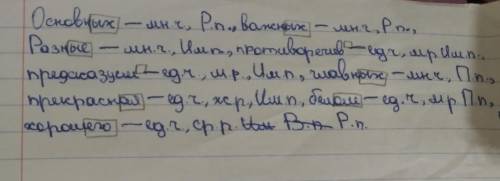 Основных – мн.ч, Р.п., важных – мн.ч, Р.п.,
Разные – мн.ч., Им.п, противоречив – ед.ч, м.р. Им.п.,
предсказуем – ед.ч, м.р., Им.п, главных – мн.ч, П.п.,
прекрасная – ед.ч, ж.р, Им.п, белом – ед.ч, м.р. П.п,
хорошего – ед.ч, ср.р. Им В.п. Р.п.